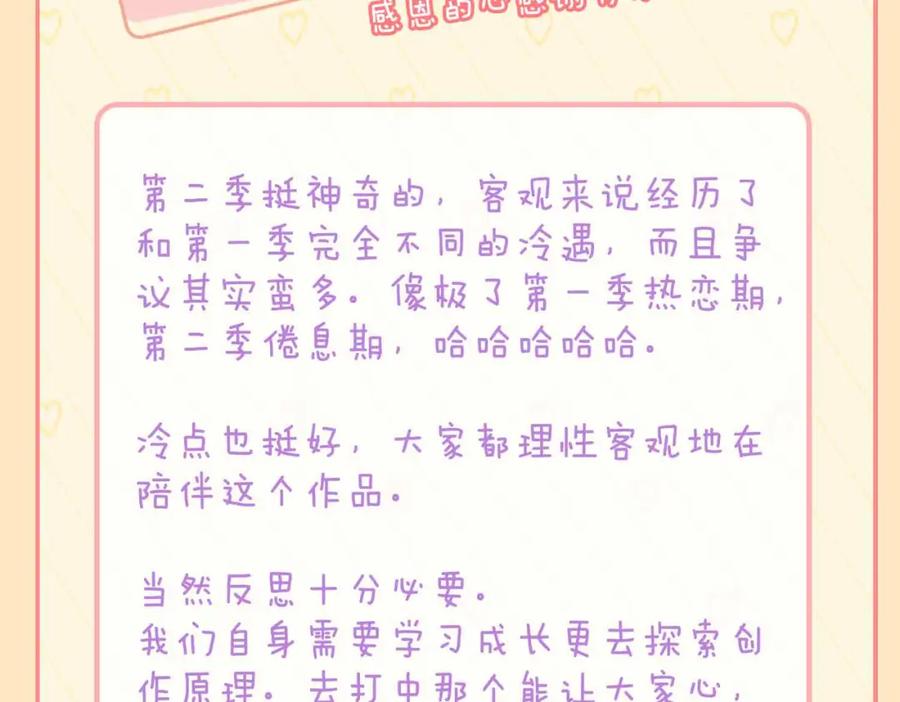 感恩的心感谢有你
第二季挺神奇的，客观来说经历了
和第一季完全不同的冷遇，而且争
议其实蛮多。像极了第一季热恋期，
第二季倦息期，哈哈哈哈哈。
冷点也挺好，大家都理性客观地在
陪伴这个作品。
当然反思十分必要。
我们自身需要学习成长更去探索创
作原理。去打中那个能让大家心，